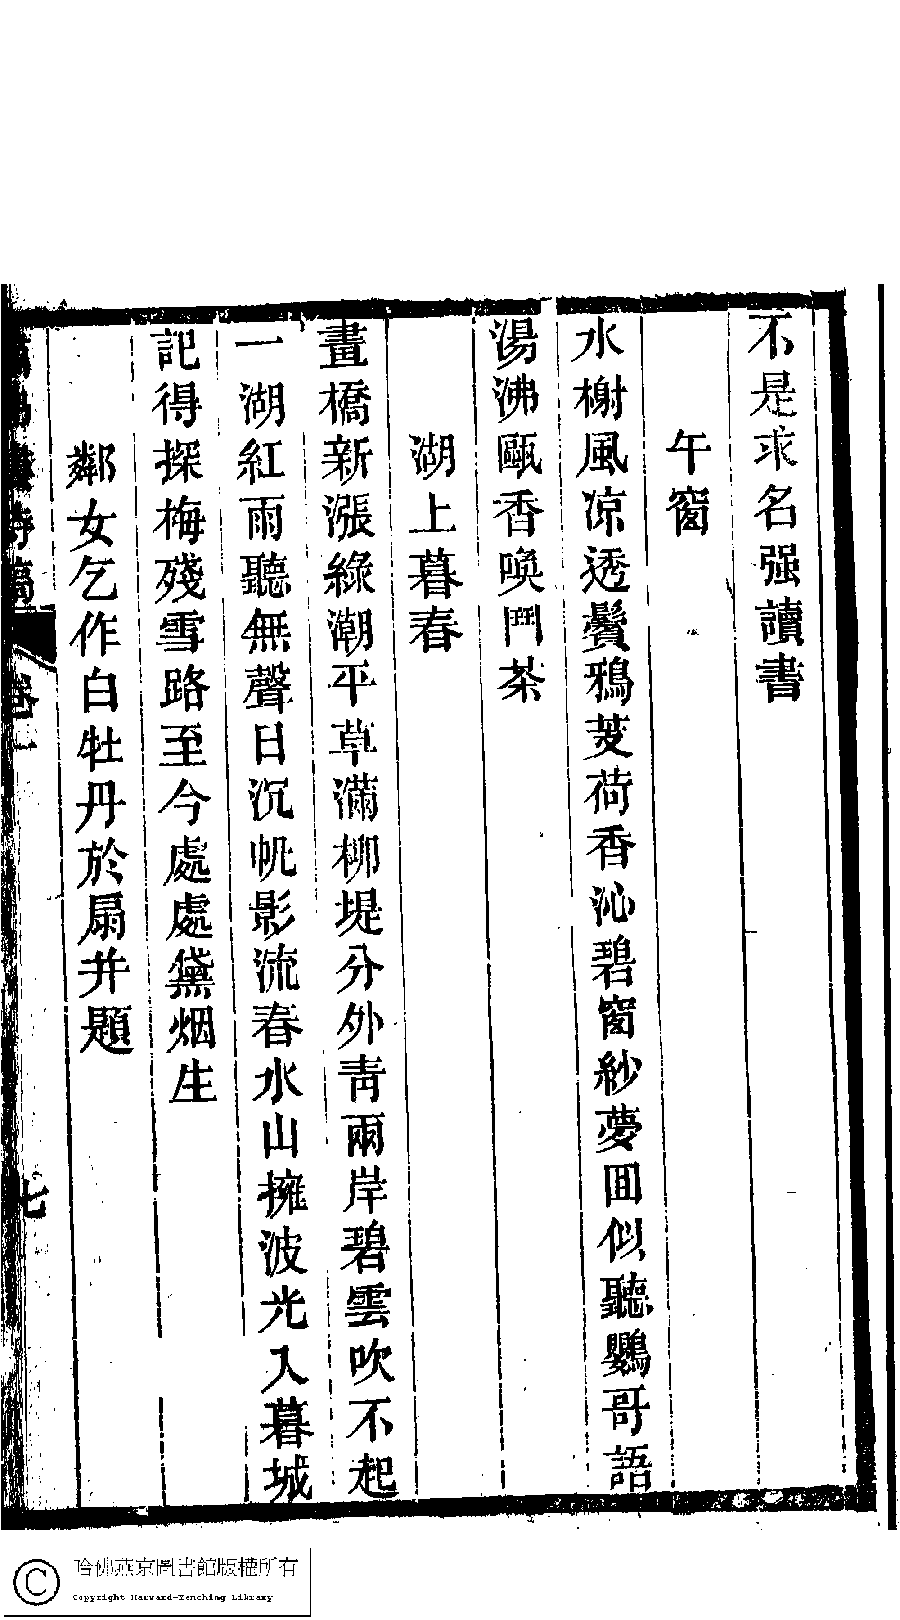 不是求名强讀書
午窗
水榭風凉透鬢鴉芰荷香沁碧窗紗夢回似聽鸚哥語
湯沸甌香喚鬥茶
湖上暮春
畫橋新漲綠潮平草滿柳堤分外青兩岸碧雲吹不起
一湖紅雨聽無聲日沉帆影流春水山擁波光入暮城
記得探梅殘雪路至今處處黛烟生
鄰女乞作白牡丹於扇并題
詩稿
卷一
七
哈佛燕京圖書館版權所有
Copyright Harvard-Yenching Library